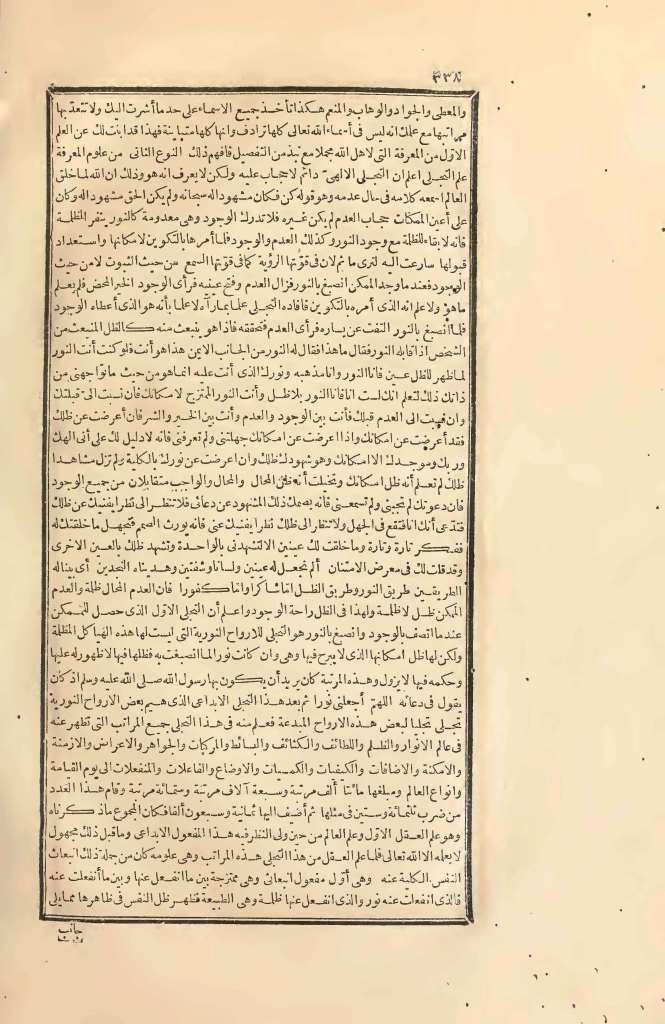 ٣٣٨
والمعطى والجواد والوهاب والمنعم هكذا تأخذ جميع الاسماء على حد ما أشرت اليك ولا تتعد بها
مراتبها مع علمك انه ليس فى أسماء الله تعالى كلها ترادف وانها كلها متباينة فهذا قد أبنت لك عن العلم
الاول من المعرفة التى لاهل الله مجملا مع نبذ من التفصيل فافهم ذلك النوع الثانى من علوم المعرفة
علم التجلى اعلم ان التجلى الالهى دائم لا حجاب عليه ولكن لا يعرف انه هو وذلك ان الله لما خلق
العالم اسمعه كلامه فى حال عدمه وهو قوله كن فكان مشهودا له سبحانه ولم يكن الحق مشهودا له وكان
على أعين الممكنات حجاب العدم لم يكن غيره فلا تدرك الوجود وهى معدومة كالنور ينفر الظلمة
فانه لا بقاء للظلمة مع وجود النور وكذلك العدم والوجود فلما أمرها بالتكوين لامكانها واستعداد
قبولها سارعت اليه لترى ما ثم لان فى قوتها الرؤية كما فى قوتها السمع من حيث الثبوت لا من حيث
الوجود فعند ما وجد الممكن انصبغ بالنور فزال العدم وفتح عينيه فرأى الوجود الخير المحض فلم يعلم
ما هو ولا علم انه الذى أمره بالتكوين فأفاده التجلى علما بما رآه لا علما بأنه هو الذى أعطاه الوجود
فلما انصبغ بالنور التفت عن يساره فرأى العدم فتحققه فاذا هو ينبعث منه كالظل المنبعث من
الشخص اذا قابله النور فقال ما هذا فقال له النور من الجانب الايمن هذا هو أنت فلو كنت أنت النور
لما ظهر للظل عين فانا النور وانا مذهبه ونورك الذى أنت عليه انما هو من حيث ما تواجهنى من
ذاتك ذلك لتعلم انك لست انا فانا النور بلا ظل وأنت النور الممتزج لامكانك فان نسبت الىّ قبلتك
وان نسبت الى العدم قبلك فأنت بين الوجود والعدم وأنت بين الخير والشر فان أعرضت عن ظلك
فقد أعرضت عن امكانك واذا اعرضت عن امكانك جهلتنى ولم تعرفنى فانه لا دليل لك على أنى الهك
وربك وموجدك الا امكانك وهو شهودك ظلك وان اعرضت عن نورك بالكلية ولم تزل مشاهدا
ظلك لم تعلم أنه ظل امكانك وتخيلت أنه ظل المحال والمحال والواجب متقابلان من جميع الوجود
فان دعوتك لم تجبنى ولم تسمعنى فانه يصمك ذلك المشهود عن دعائى فلا تنظر الىّ نظرا يفنيك عن ظلك
فتدعى أنك انا فتقع فى الجهل ولا تنظر الى ظلك نظرا يفنيك عنى فانه يورث الصمم فتجهل ما خلقتك له
فكن تارة وتارة وما خلقت لك عينين الا لتشهدنى بالواحدة وتشهد ظلك بالعين الاخرى
وقد قلت لك فى معرض الامتنان ألم نجعل له عينين ولسانا وشفتين وهديناه النجدين أى بينا له
الطريقين طريق النور وطريق الظل اما شاكرا واما كفورا فان العدم المحال ظلمة والعدم
الممكن ظل لا ظلمة ولهذا فى الظل راحة الوجود واعلم أن التجلى الاول الذى حصل للممكن
عند ما اتصف بالوجود وانصبغ بالنور هو التجلى للارواح النورية التى ليست لها هذه الهياكل المظلمة
ولكن لها ظل امكانها الذى لا يبرح فيها وهى وان كانت نورا لما انصبغت به فظلها فيها لا ظهور له عليها
وحكمه فيها لا يزول وهذه المرتبة كان يريد أن يكون بها رسول الله صلى الله عليه وسلم اذ كان
يقول فى دعائه اللهم اجعلنى نورا ثم بعد هذا التجلى الابداعى الذى هيم بعض الارواح النورية
تجلى تجليا لبعض هذه الارواح المبدعة فعلم منه فى هذا التجلى جميع المراتب التى تظهر عنه
فى عالم الانوار والظلم واللطائف والكثائف والبسائط والمركبات والجواهر والاعراض والازمنة
والامكنة والاضافات والكيفيات والكميات والاوضاع والفاعلات والمنفعلات الى يوم القيامة
وانواع العالم ومبلغها مائتا ألف مرتبة وسبعة آلاف مرتبة وستمائة مرتبة وقام هذا العدد
من ضرب ثلثمائة وستين فى مثلها ثم أضيف اليها ثمانية وسبعون ألفا فكان المجموع ما ذكرناه
وهو علم العقل الاول وعلم العالم من حين ولى النظر فيه هذا المفعول الابداعى وما قبل ذلك مجهول
لا يعلمه الا الله تعالى فلما علم العقل من هذا التجلى هذه المراتب وهى علومه كان من جملة ذلك انبعاث
النفس الكلية عنه وهى أول مفعول انبعاثى وهى ممتزجة بين ما انفعل عنها وبين ما انفعلت عنه
فالذى انفعلت عنه نور والذى انفعل عنها ظلمة وهى الطبيعة فظهر ظل النفس فى ظاهرها مما يلى
جانب